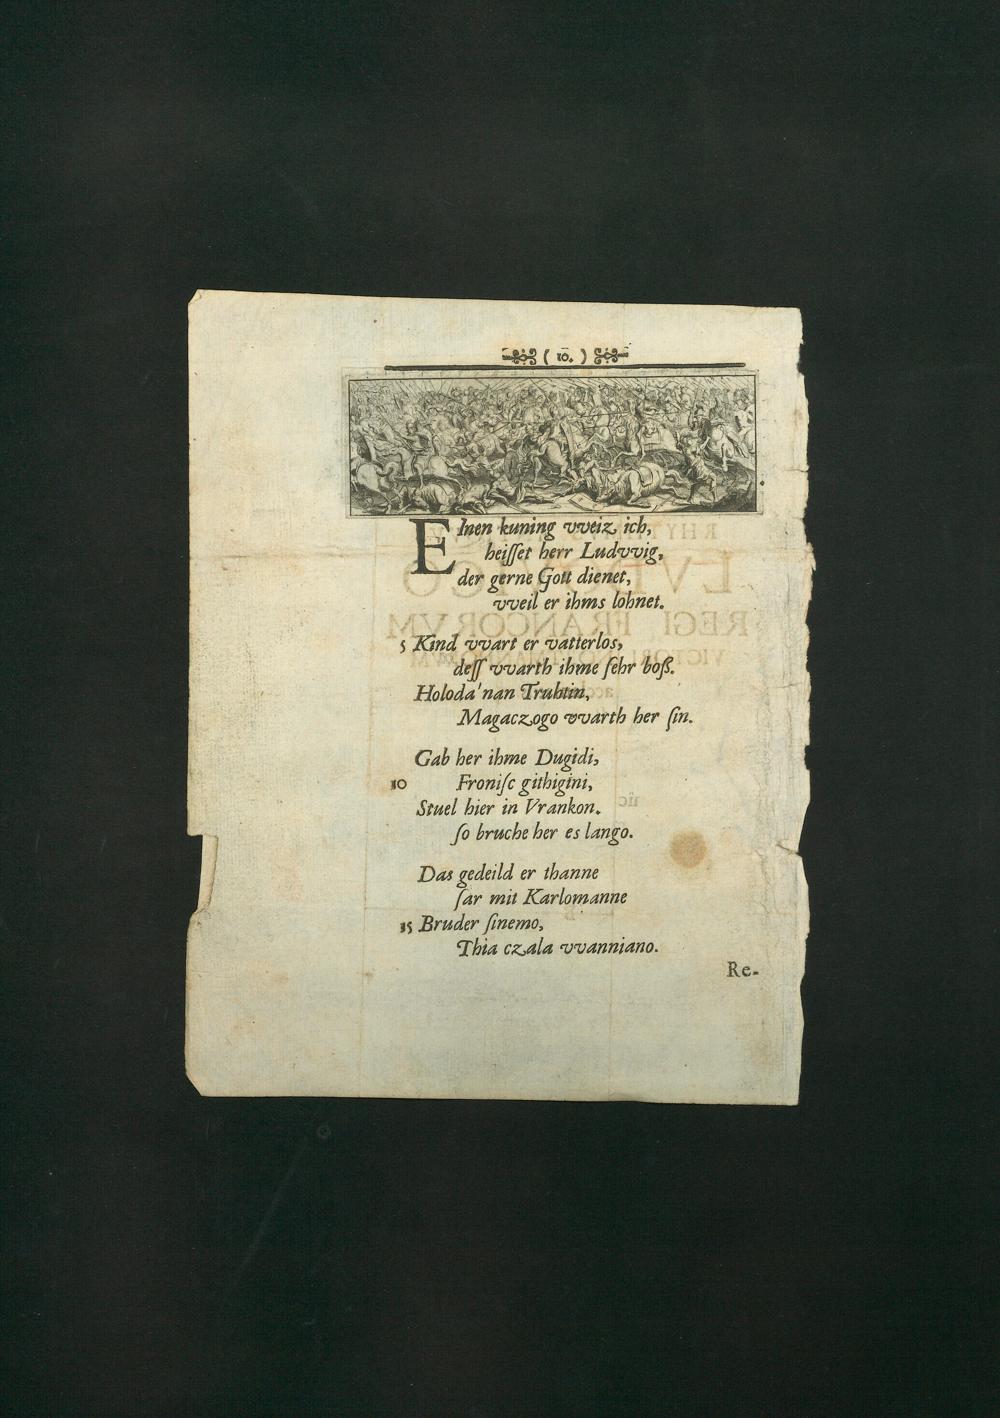 ( 10. )
EInen kuning vveiz ich,
heiſſet herr Ludvvig,
der gerne Gott dienet,
vveil er ihms lohnet.
5 Kind vvart er vatterlos,
deſſ vvarth ihme ſehr boß.
Holoda'nan Truhtin,
Magaczogo vvarth her ſin.
Gab her ihme Dugidi,
10 Froniſc githigini,
Stuel hier in Vrankon.
ſo bruche her es lango.
Das gedeild er thanne
ſar mit Karlomanne
15 Bruder ſinemo,
Thia czala vvanniano.
Re-